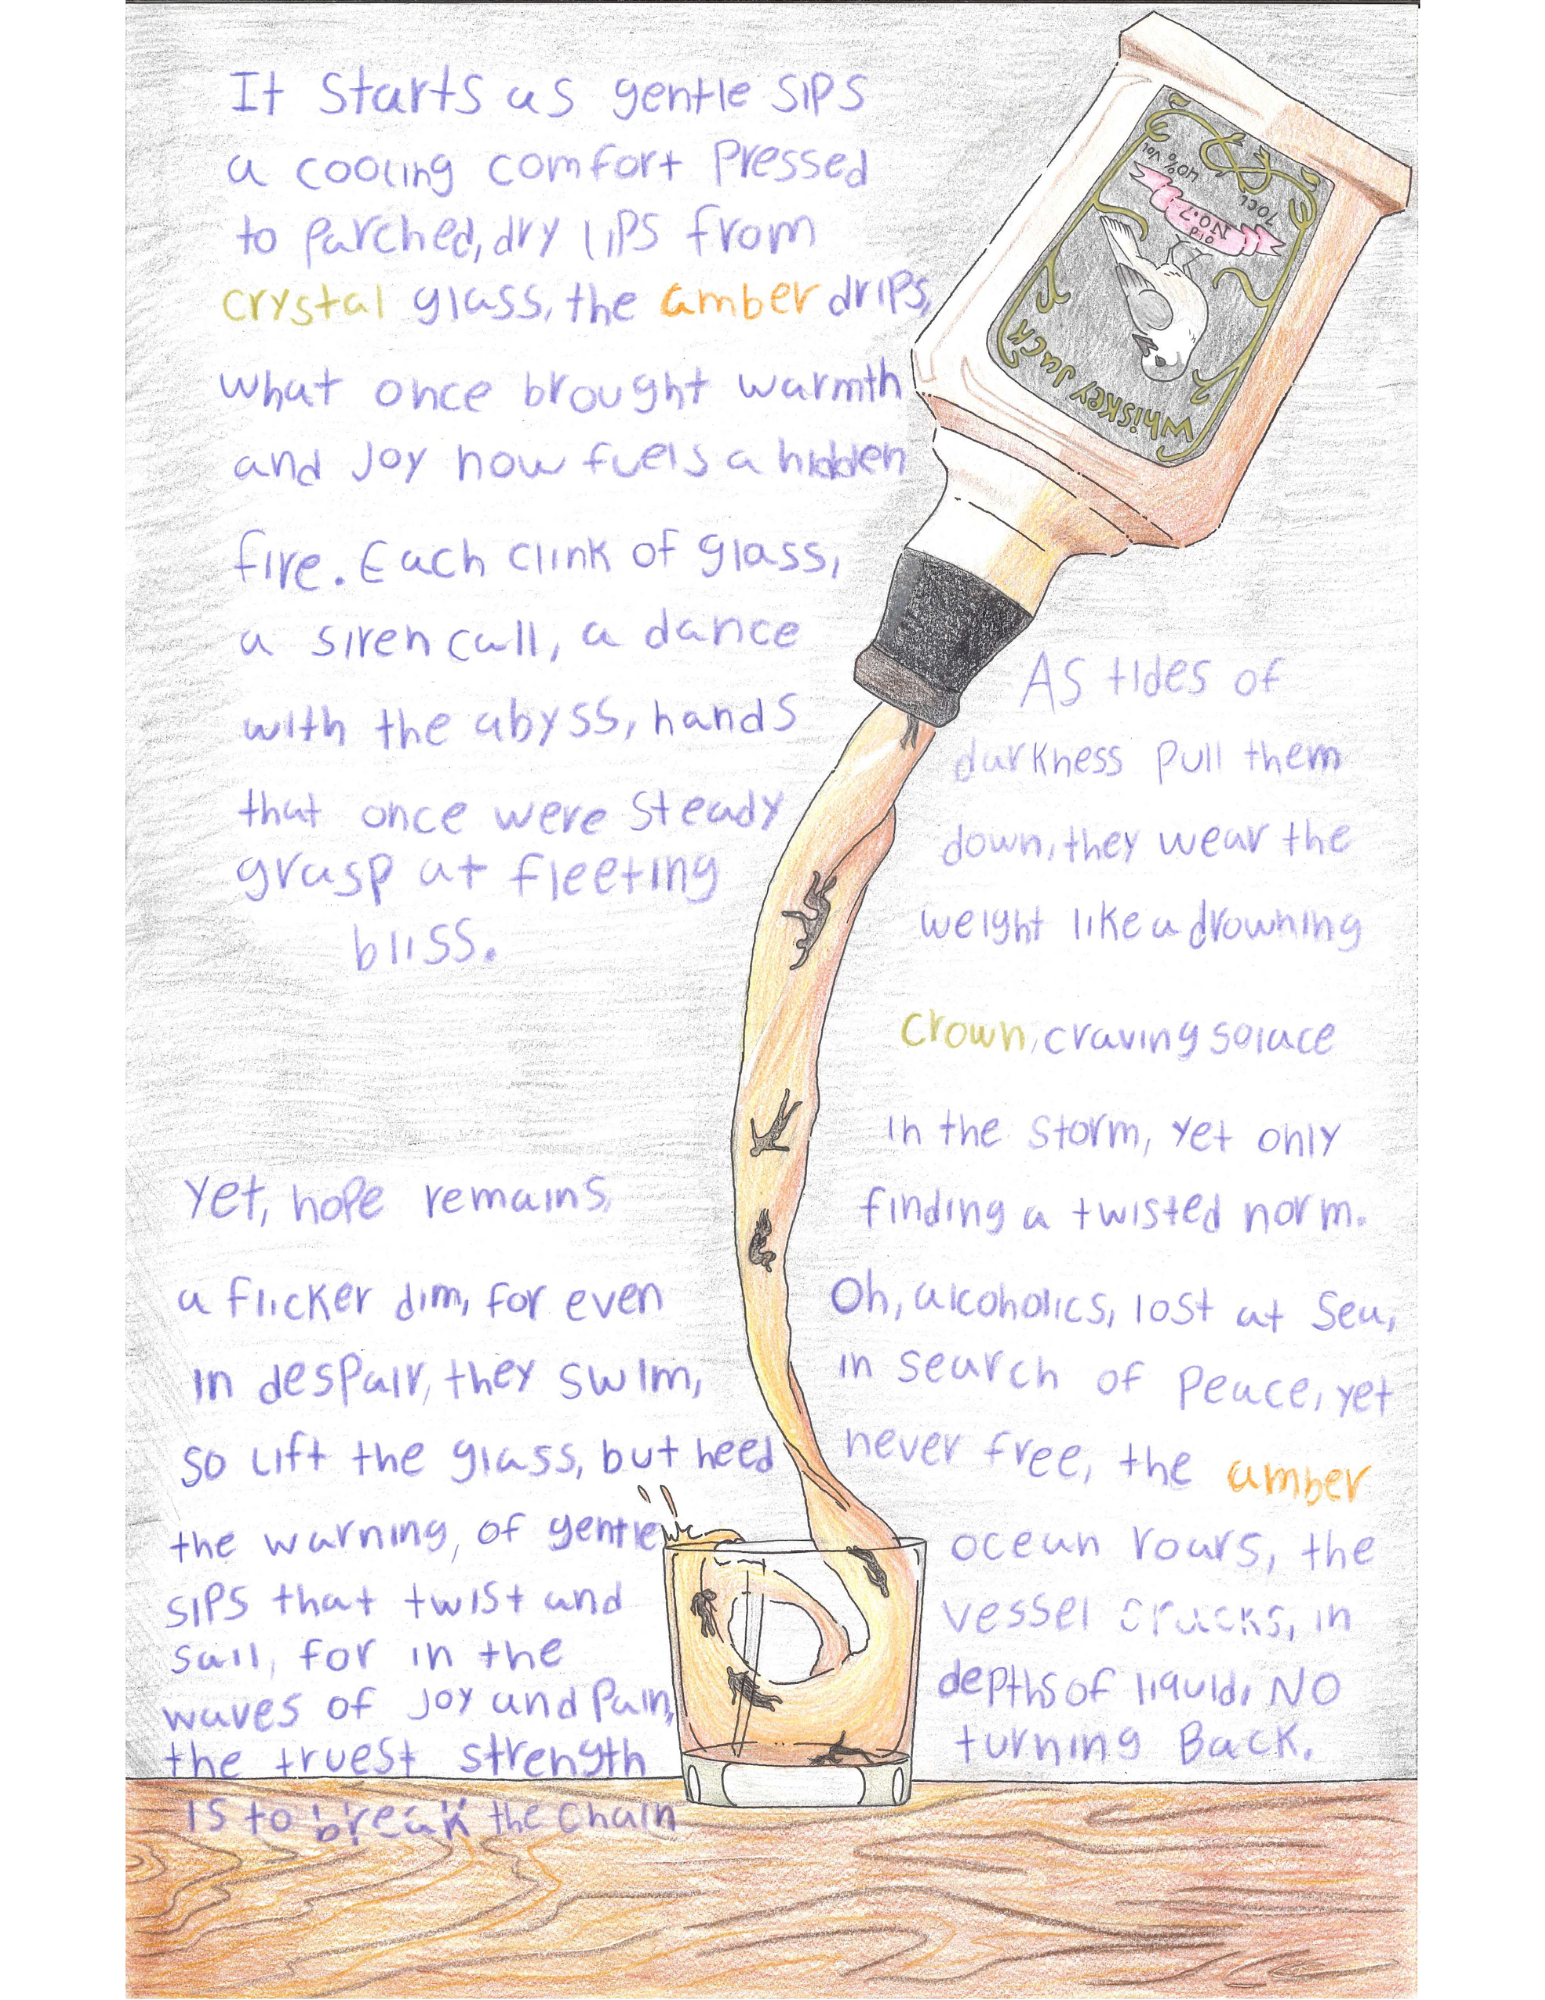 It starts as gentle sips
a cooling comfort pressed
to parched, dry lips from
crystal glass, the amber drips,
what once brought warmth
and joy now fuels a hidden
fire. Each clink of glass,
a siren call, a dance
with the abyss, hands
that once were steady
grasp at fleeting
bliss.
As tides of
darkness pull them
down, they wear the
weight like a drowning
crown, craving solace
in the storm, yet only
finding a twisted norm.
Oh, alcoholics, lost at sea,
in search of peace, yet
never free, the amber
ocean roars, the
vessel cracks, in
depths of liquid, NO
turning Back.
Yet, hope remains,
a flicker dim, for even
in despair, they swim,
so lift the glass, but heed
the warning, of gentle
sips that twist and
sail, for in the
waves of joy and pain,
the truest strength
is to break the chain
Whiskey Jack
Old
No.7
70CL
40% Vol